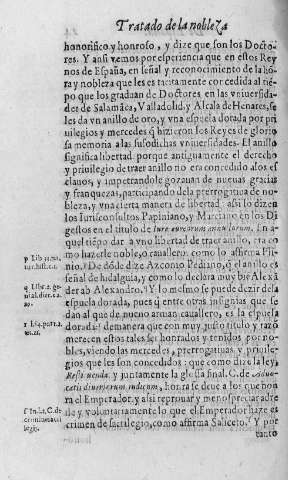 Tratado de la nobleza
honorifico y honroso, y dize que son los Docto-
res. Y ansi vemos por esperiencia que en estos Rey
nos de España, en señal y reconocimiento de la hō
ra y nobleza que les es tacitamente concedida al tiē
po que los graduan de Doctores en las vniuersida-
des de Salamāca, Valladolid, y Alcala de Henares, se
les da vn anillo de oro, y vna espuela dorada por pri
uilegios y mercedes q̄ hizieron los Reyes de glorio
sa memoria a las susodichas vniuersidades. El anillo
significa libertad: porque antiguamente el derecho
y priuilegio de traer anillo no era concedido a los es
clauos, y impetrandole gozauan de nueuas gracias
y franquezas, participando de la prerrogatiua de no-
bleza, y vna cierta manera de libertad, assi lo dizen
los Iurisconsultos Papiniano, y Marciano en los Di
gestos en el titulo de iure aureorum annulorum. En a-
quel tiēpo dar a vno libertad de traer anillo, era co
mo hazerle noble, o cauallero, como lo affirma Pli-
nio. De dōde dize Asconio Pediano, q̄ el anillo es
señal de hidalguia, y como lo declara muy biē Alexā
der ab Alexandro. Y lo mesmo se puede dezir de la
espuela dorada, pues q̄ entre otras insignias que se
dan al que de nueuo arman cauallero, es la espuela
dorada: de manera que con muy justo titulo y razō
merecen estos tales ser honrados y tenidos por no-
bles, viendo las mercedes, prerrogatiuas, y priuile-
gios que les son concedidos: que como dize la ley,
y juntamente la glossa final. C. de Aduo-
catis diuersorum iudicum, honra se deue a los que honra
el Emperador, y assi reprouar y menospreciar adre
de y voluntariamente lo que el Emperador haze es
crimen de sacrilegio, como affirma Saliceto. Y por
tanto